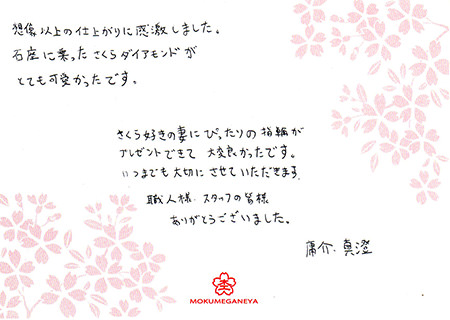 想像以上の仕上がりに感激しました。
石座に乗ったさくらダイアモンドが
とても可愛かったです。
さくら好きの妻にぴったりの指輪が
プレゼントできて 大変良かったです。
いつまでも大切にさせていただきます。
職人様 スタッフの皆様
ありがとうございました。
庸介・真澄
MOKUMEGANEYA